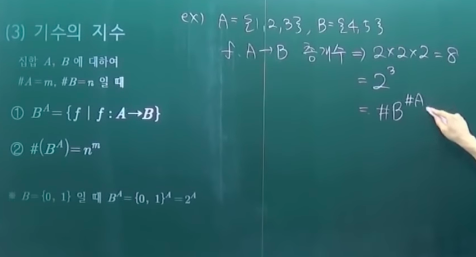 (3) 기수의 지수
집합 A, B 에 대하여
#A=m, #B=n 일 때
① B^A={f | f : A→B}
② #(B^A)=n^m
※ B={0, 1} 일 때 B^A={0, 1}^A=2^A
ex) A={1,2,3}, B={4,5}
f. A→B 총개수 ⇒ 2×2×2=8
= 2^3
= #B^#A